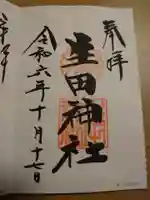 奉拝
生田神社
令和六年十月十七日